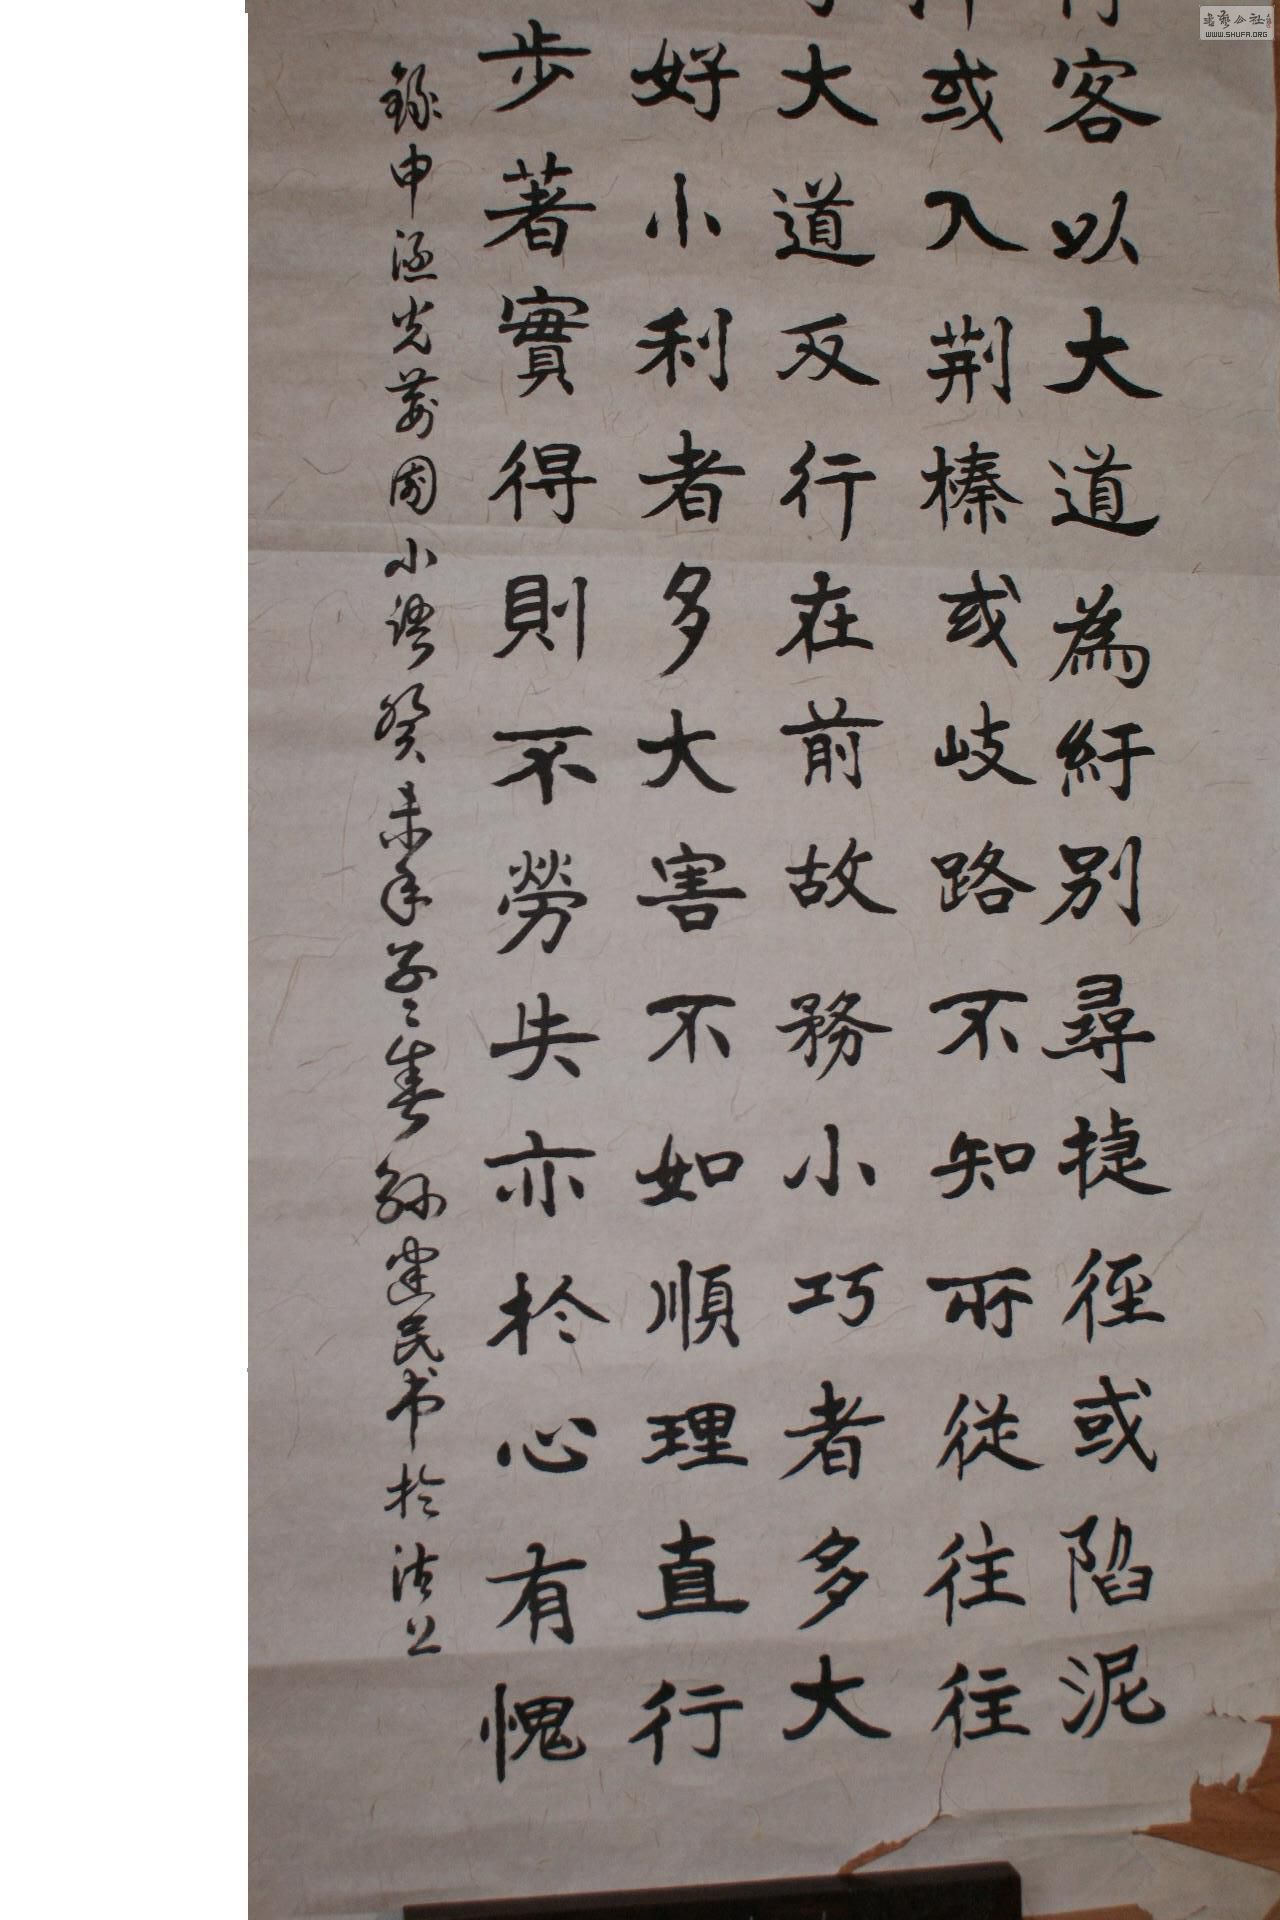 客以大道為紆別尋捷徑或陷泥
或入荆榛或岐路不知所從往往
大道反行在前故務小巧者多大
好小利者多大害不如順理直行
步著實得則不勞失亦於心有愧
錄申涵光荊園小語癸未年孟春孫建民书於沽上
WWW.SHUFA.ORG